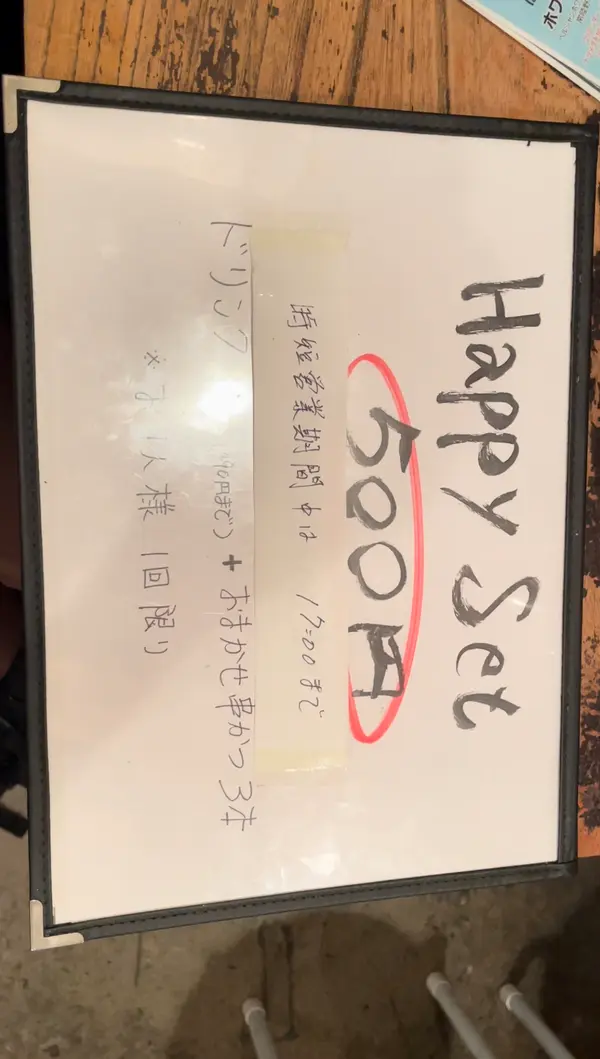 Happy Set
500円
時短営業期間中は 17:00まで
ドリンク 90円まで) + おまかせ串かつ3本
※お一人様 1回限り
ホワ